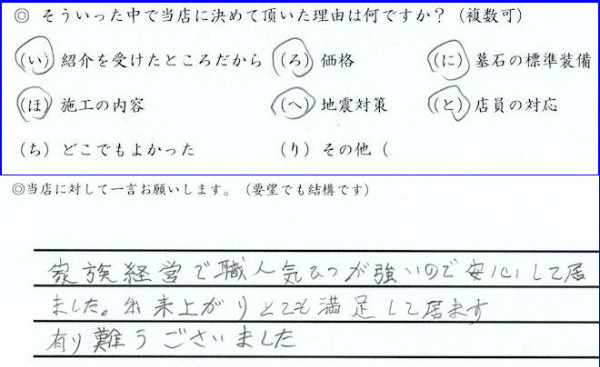 ◎ そういった中で当店に決めて頂いた理由は何ですか？（複数可）
（い）紹介を受けたところだから （ろ）価格 （に）墓石の標準装備
（ほ）施工の内容 （へ）地震対策 （と）店員の対応
（ち）どこでもよかった （り）その他（
◎当店に対して一言お願いします。（要望でも結構です）
家族経営で職人気しつが強いので安心して居
ました。出来上がりとても満足して居ます
有り難うございました